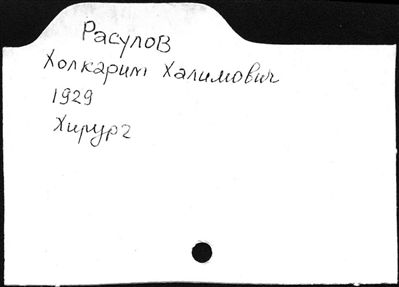 Расулов
Холкарим Халимович
1929
Хирург